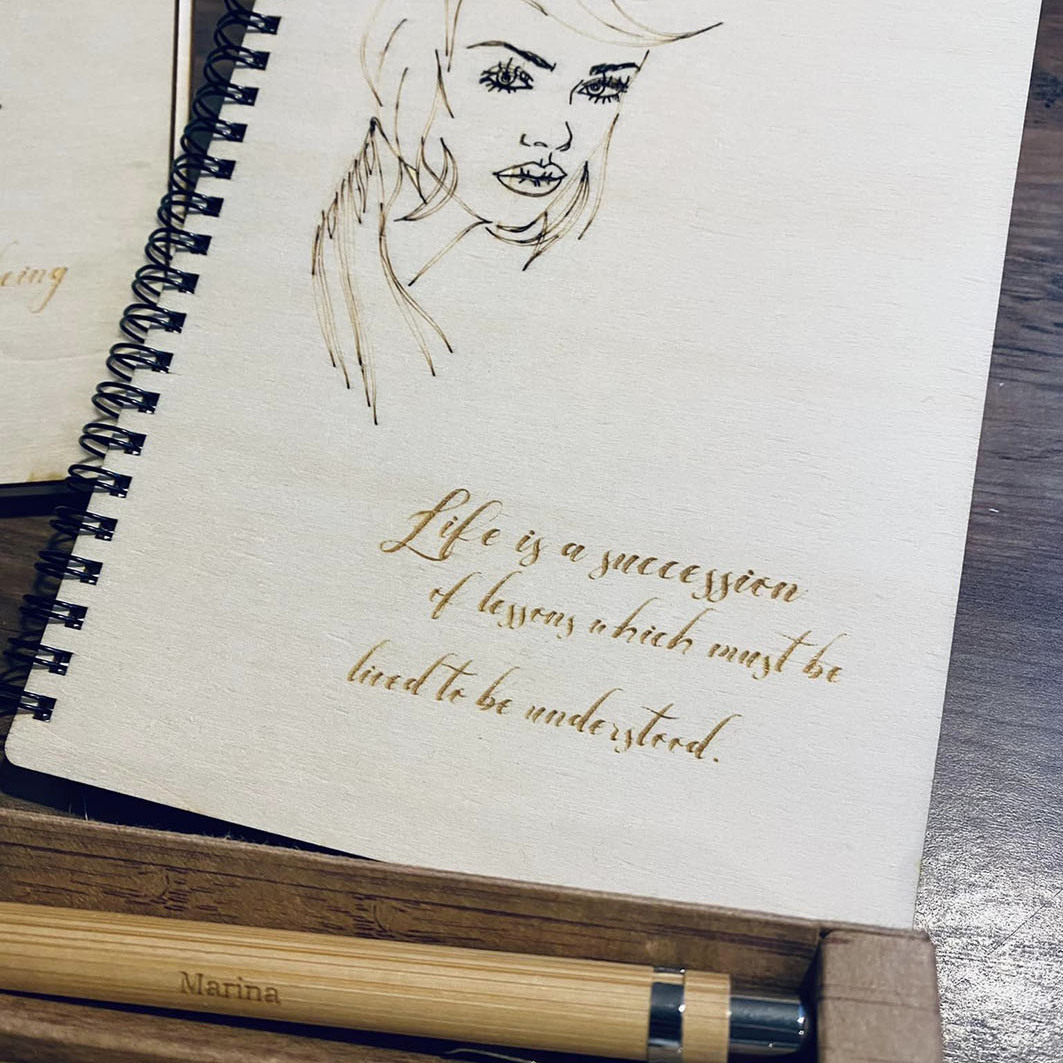 Life is a succession
of lessons which must be
lived to be understood.
Marina